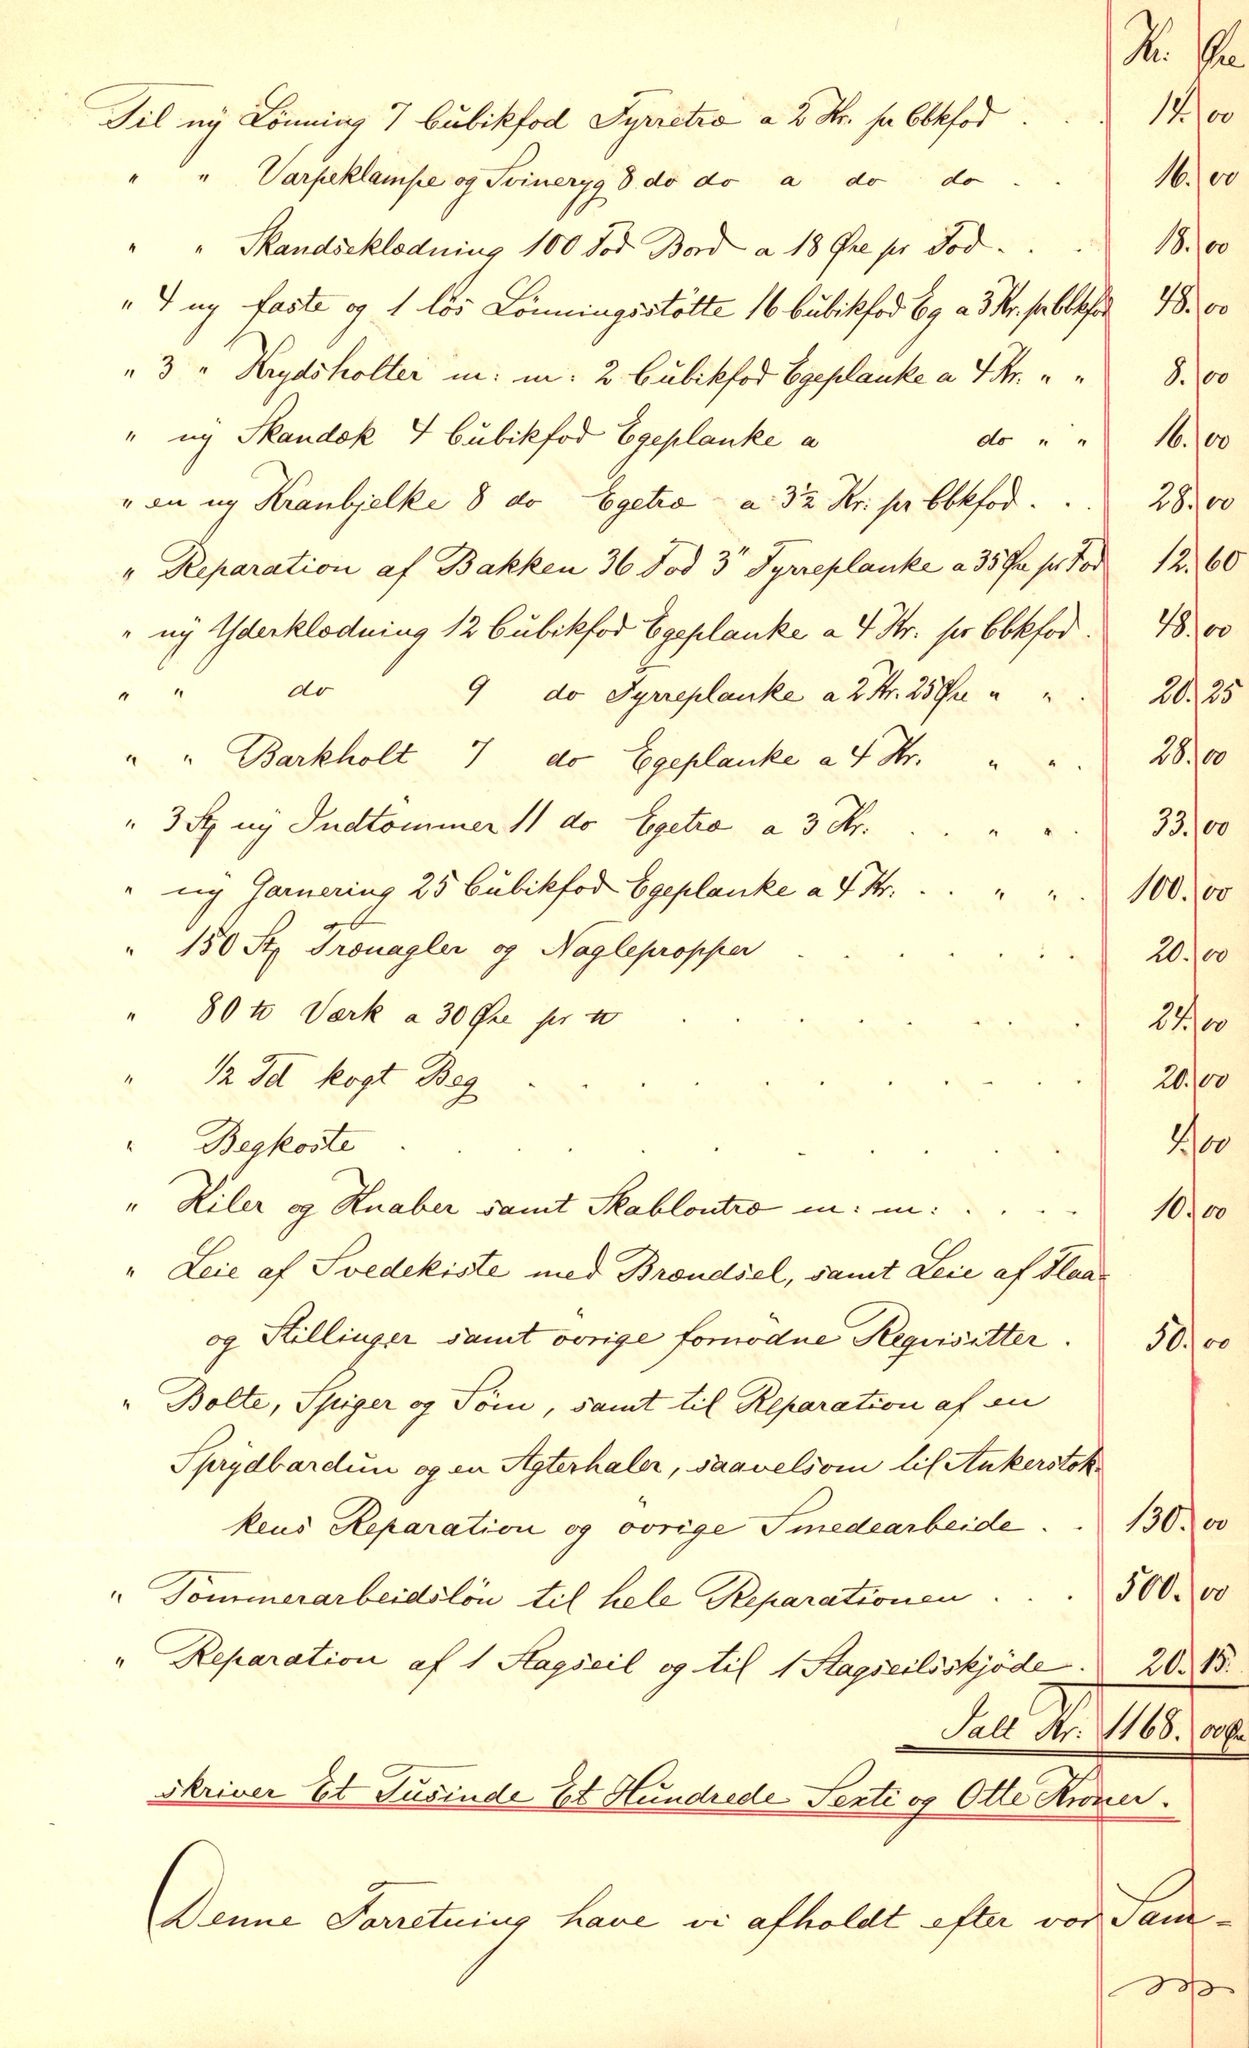 Kr. Øre
Til ny Lönning 7 Cubikfod Fyrretræ a 2 Kr. pr Cbkfod . . . 14. 00
" " Varpeklampe og Svineryg 8 do do a do do . . 16. 00
" " Skandseklædning 100 Fod Bord a 18 Øre pr Fod . . . 18. 00
" 4 ny faste og 1 lös Lönningsstötte 16 Cubikfod Eg a 3 Kr. pr Cbkfod 48. 00
" 3 " Krydsholter m: m: 2 Cubikfod Egeplanke a 4 Kr. " " 8. 00
" ny Skandæk 4 Cubikfod Egeplanke a do " " 16. 00
" en ny Kranbjelke 8 do Egetræ a 3½ Kr: pr Cbkfod . . . 28. 00
" Reparation af Bakken 36 Fod 3" Fyrreplanke a 35 Øre pr Fod 12. 60
" ny Yderklædning 12 Cubikfod Egeplanke a 4 Kr. pr Cbkfod . 48. 00
" " do 9 do Fyrreplanke a 2 Kr. 25 Øre " " . 20. 25
" " Barkholt 7 do Egeplanke a 4 Kr. " " . 28. 00
" 3 Stk ny Indtömmer 11 do Egetræ a 3 Kr. . . " " . 33. 00
" ny Garnering 25 Cubikfod Egeplanke a 4 Kr. . . " " . 100. 00
" 150 Stk Trænagler og Naglepropper . . . . . . . 20. 00
" 80 ℔ Værk a 30 Øre pr ℔ . . . . . . . . 24. 00
" 1/2 Td kogt Beg . . . . . . . . . . . 20. 00
" Begkoste . . . . . . . . . . 4. 00
" Kiler og Knaber samt Skablontræ m: m: . . . . 10. 00
" Leie af Svedekiste med Brændsel, samt Leie af Flaa-
og Stillinger samt övrige fornödne Reqvisitter . 50. 00
" Bolte, Spiger og Söm, samt til Reparation af en
Sprydbardun og en Agterhaler, saavelsom til Ankerstok-
kens Reparation og övrige Smedearbeide . . 130. 00
" Tömmerarbeidslön til hele Reparationen . . . 500. 00
" Reparation af 1 Stagseil og til 1 Stagseilsskjöde . 20. 15.
Ialt Kr. 1168. 00 Øre
skriver Et Tusinde Et Hundrede Sexti og Otte Kroner.
Denne Forretning have vi afholdt efter vor Sam-